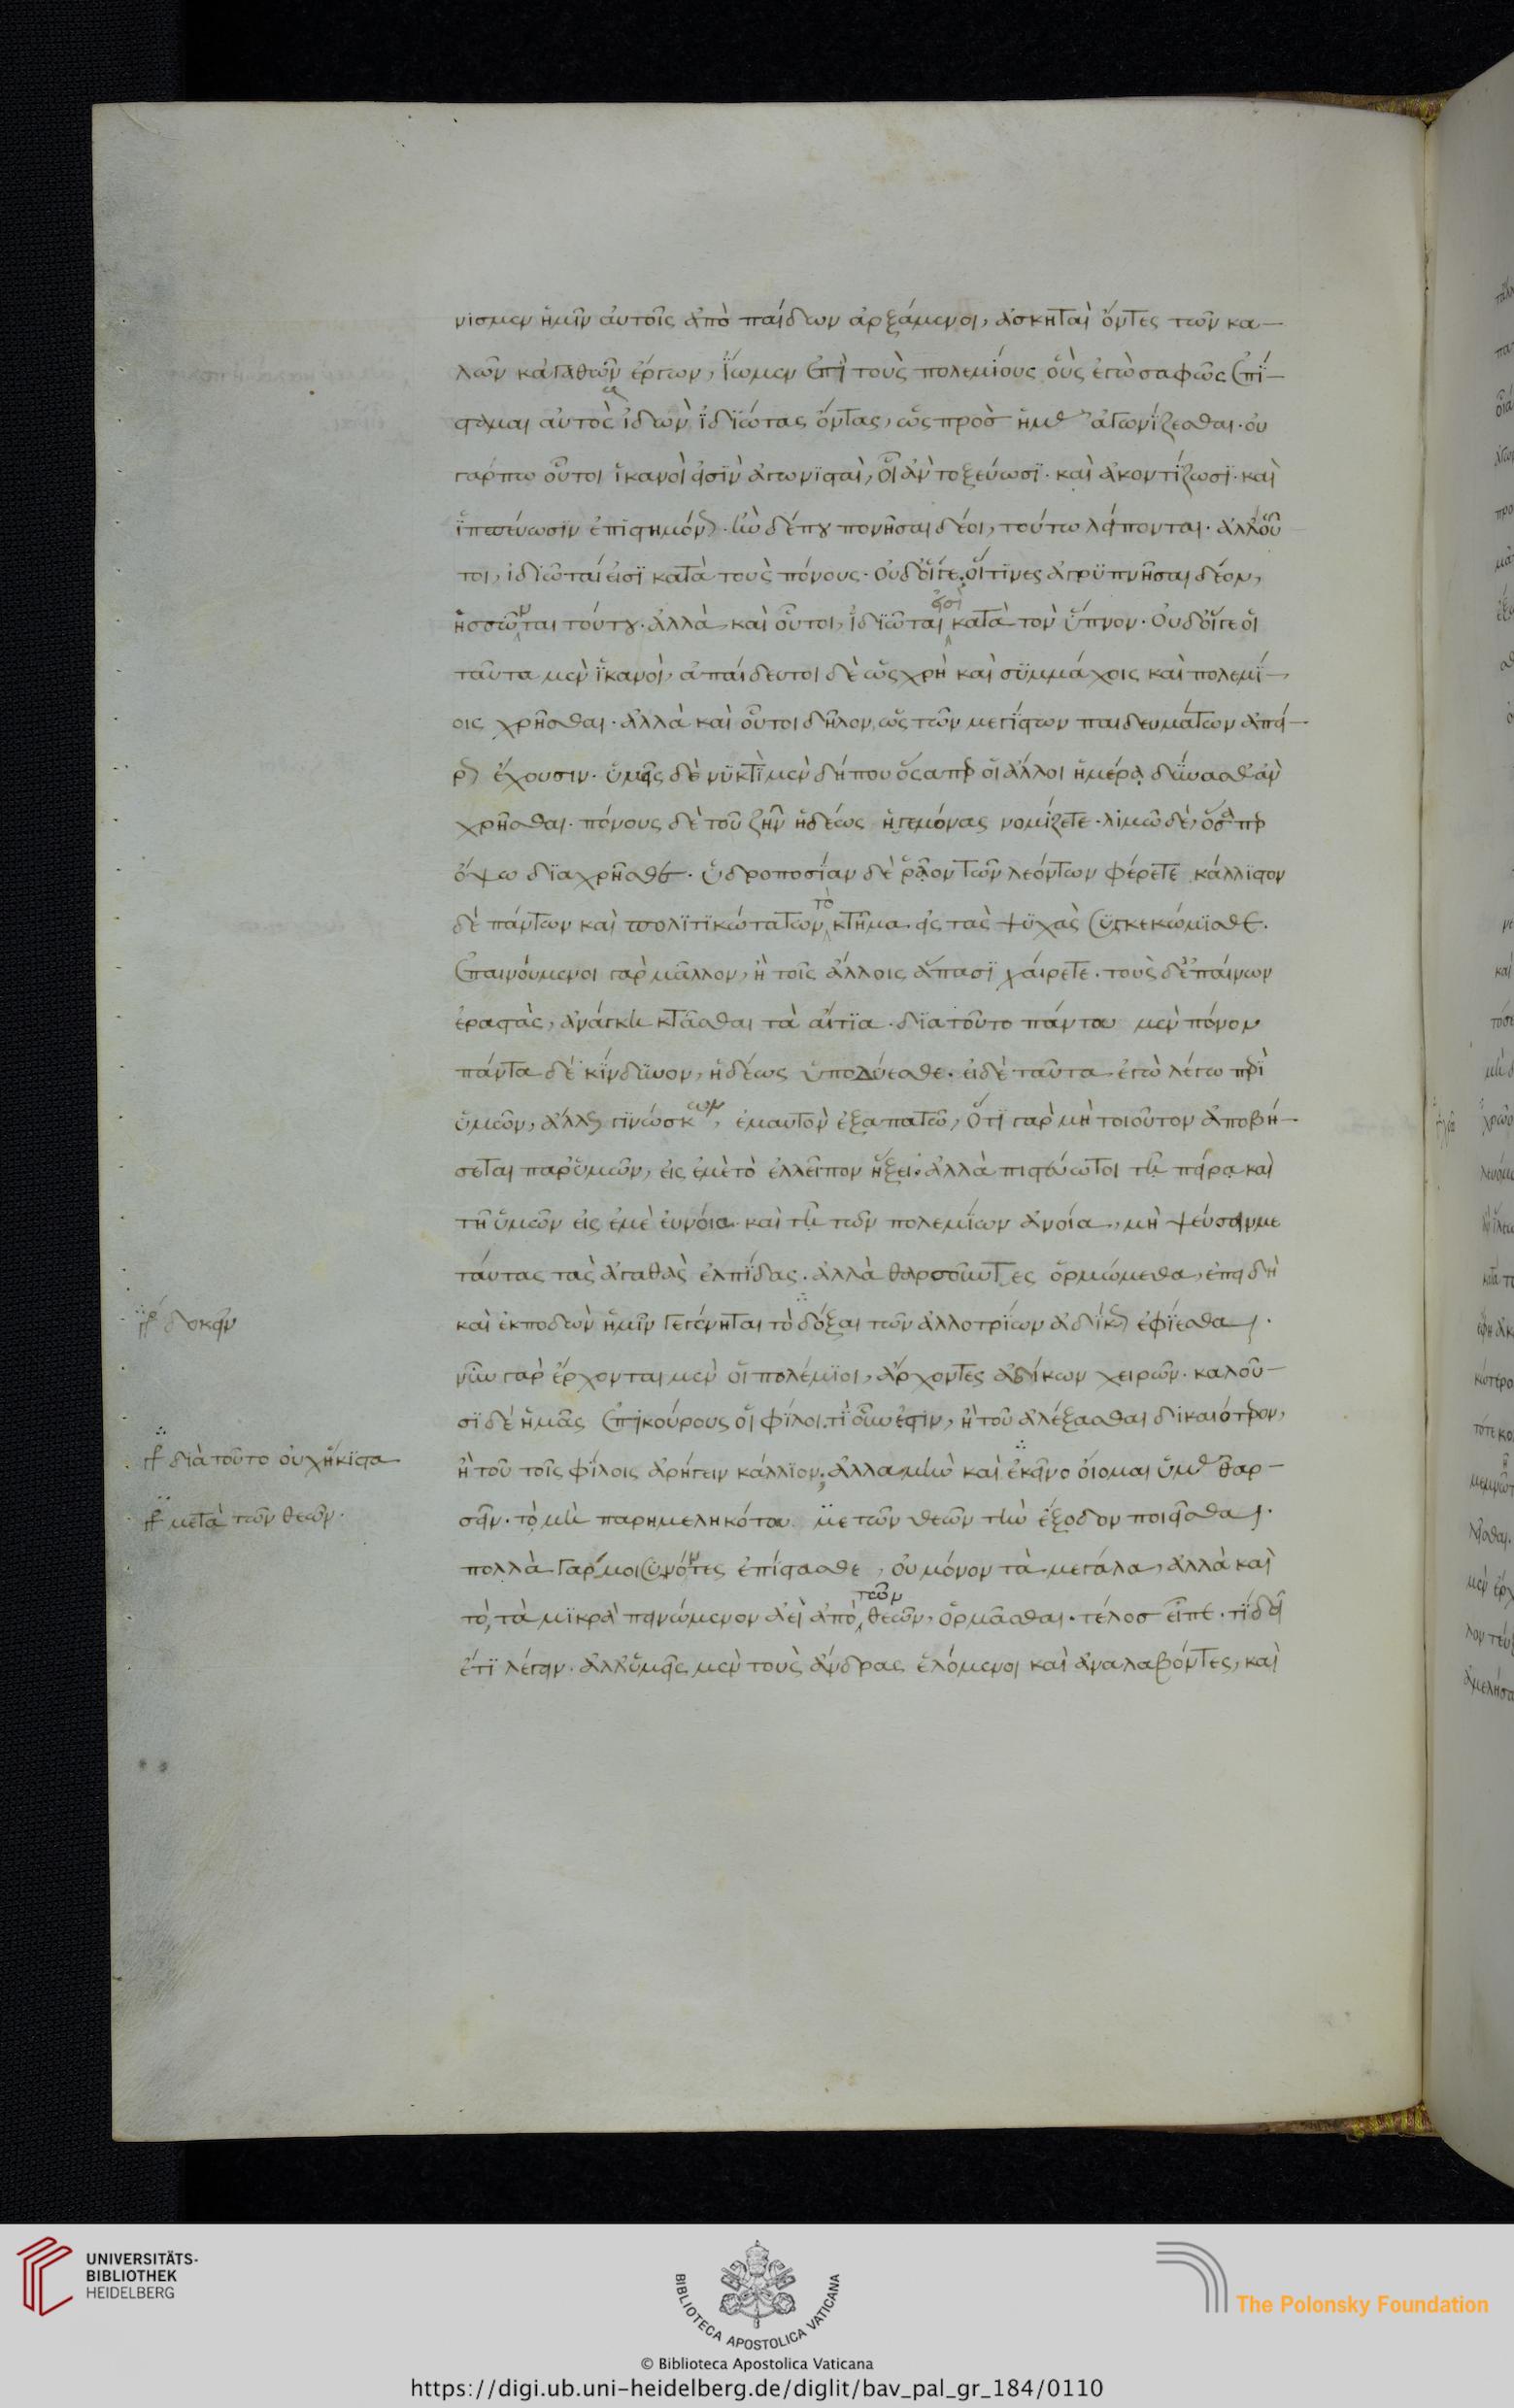 νισμεν ἡμῖν αὐτοῖς ἀπὸ παίδων ἀρξάμενοι, ἀσκηταὶ ὄντες τῶν κα–
λῶν κἀγαθῶν ἔργων, ἴωμεν ἐπὶ τοὺς πολεμίους οὓς ἐγὼ σαφῶς ἐπί–
σταμαι αὐτὸς ἰδὼν ἰδιώτας ὄντας, ὡς πρὸς ἡμᾶς ἀγωνίζεσθαι· οὐ
γάρ πω οὗτοι ἱκανοὶ εἰσὶν ἀγωνισταὶ, οἳ ἂν τοξεύωσι· καὶ ἀκοντίζωσι· καὶ
ἱππεύωσιν ἐπιστημόνως· ἢν δέ που πονῆσαι δέοι, τούτω λείπονται· ἀλλ' οὗ
τοι, ἰδιῶταί εἰσι κατὰ τοὺς πόνους· οὐδ' οἵγε, οἵτινες ἀγρυπνῆσαι δέον,
ἡσσῶνται τούτου· ἀλλὰ καὶ οὗτοι, ἰδιῶται εἰσὶ κατὰ τὸν ὕπνον· Οὐδ' οἵγε οἱ
ταῦτα μὲν ἱκανοὶ, ἀπαίδευτοι δὲ ὡς χρὴ καὶ συμμάχοις καὶ πολεμί–
οις χρῆσθαι· ἀλλὰ καὶ οὗτοι δῆλον, ὡς τῶν μεγίστων παιδευμάτων ἀπεί–
ρως ἔχουσιν· ὑμεῖς δὲ νυκτὶ μὲν δήπου ὅσαπερ οἱ ἄλλοι ἡμέρᾳ δύναισθ' ἂν
χρῆσθαι· πόνους δὲ τοῦ ζῆν ἡδέως ἡγεμόνας νομίζετε· λιμῶ δὲ, ὅσαπερ
ὄψω διαχρῆσθε· ὑδροποσίαν δὲ ῥᾷον τῶν λεόντων φέρετε κάλλιστον
δὲ πάντων καὶ πολιτικώτατων τὸ κτῆμα εἰς τὰς ψυχὰς συγκεκόμισθε·
Ἐπαινούμενοι γὰρ μᾶλλον, ἢ τοῖς ἄλλοις ἅπασι χαίρετε· τοὺς δ' ἐπαίνων
ἐραστὰς, ἀνάγκη κτᾶσθαι τὰ αἴτια· διὰ τοῦτο πάντα μὲν πόνον
πάντα δὲ κίνδυνον, ἡδέως ὑποδύεσθε· εἰ δὲ ταῦτα ἐγὼ λέγω περὶ
ὑμῶν, ἄλλως γινώσκων, ἐμαυτὸν ἐξαπατῶ, ὅτι γὰρ μὴ τοιοῦτον ἀποβή–
σεται παρ' ὑμῶν, εἰς ἐμὲ τὸ ἐλλεῖπον ἥξει· ἀλλὰ πιστεύω τοι τῇ πείρᾳ καὶ
τῇ ὑμῶν εἰς ἐμὲ εὐνοία καὶ τῇ τῶν πολεμίων ἀνοία, μὴ ψεύσειν με
ταύτας τὰς ἀγαθὰς ἐλπίδας· ἀλλὰ θαρσοῦντες ὁρμώμεθα, ἐπειδὴ
καὶ ἐκποδὼν ἡμῖν γεγένηται τὸ δόξαι τῶν ἀλλοτρίων ἀδίκως ἐφίεσθαι·
νῦν γὰρ ἔρχονται μὲν οἱ πολέμιοι, ἄρχοντες ἀδίκων χειρῶν· καλοῦ–
σι δὲ ἡμᾶς ἐπικούρους οἱ φίλοι· τί οὖν ἐστιν, ἢ τοῦ ἀλέξασθαι δικαιότερον,
ἢ τοῦ τοῖς φίλοις ἀρήγειν κάλλιον; ἀλλὰ μὴν καὶ ἐκεῖνο οἴομαι ὑμᾶς θαρ–
σεῖν· τὸ μὴ παρημεληκότα με τῶν θεῶν τὴν ἔξοδον ποιεῖσθαι·
πολλὰ γάρ μοι συνόντες ἐπίστασθε, οὐ μόνον τὰ μεγάλα, ἀλλὰ καὶ
τὸ, τὰ μικρὰ πειρώμενον ἀεὶ ἀπὸ τῶν θεῶν, ὁρμᾶσθαι· τέλος εἶπε· τί δεῖ
ἔτι λέγειν· ἀλλ' ὑμεῖς μὲν τοὺς ἄνδρας ἑλόμενοι καὶ ἀναλαβόντες, καὶ
γρ. δοκεῖν
γρ. διὰ τοῦτο οὐχ ἥκιστα
γρ. μετὰ τῶν θεῶν·
UNIVERSITÄTS-
BIBLIOTHEK
HEIDELBERG
BIBLIOTECA APOSTOLICA VATICANA
The Polonsky Foundation
© Biblioteca Apostolica Vaticana
https://digi.ub.uni-heidelberg.de/diglit/bav_pal_gr_184/0110